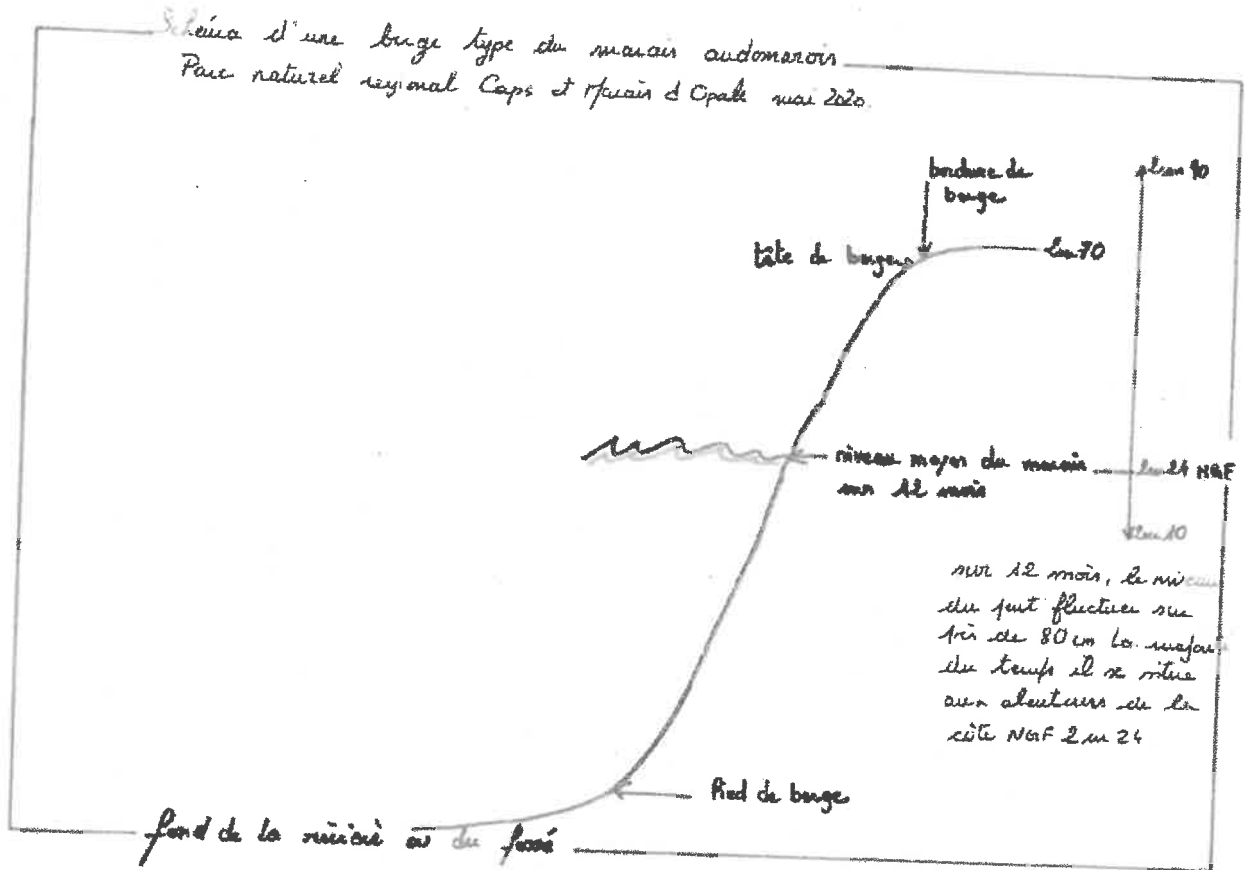 Schéma d'une berge type du marais audomarois
Parc naturel regional Caps et Marais d Opale mai 2020
bordure de
berge
2m 90
tête de berge
2m 70
niveau moyen du marais
sur 12 mois
2m 24 NGF
2m 10
sur 12 mois, le niveau
du peut fluctuer sur
près de 80 cm La major
du temps il se situe
aux alentours de la
côte NGF 2m 24
Pied de berge
fond de la rivière ou du fossé